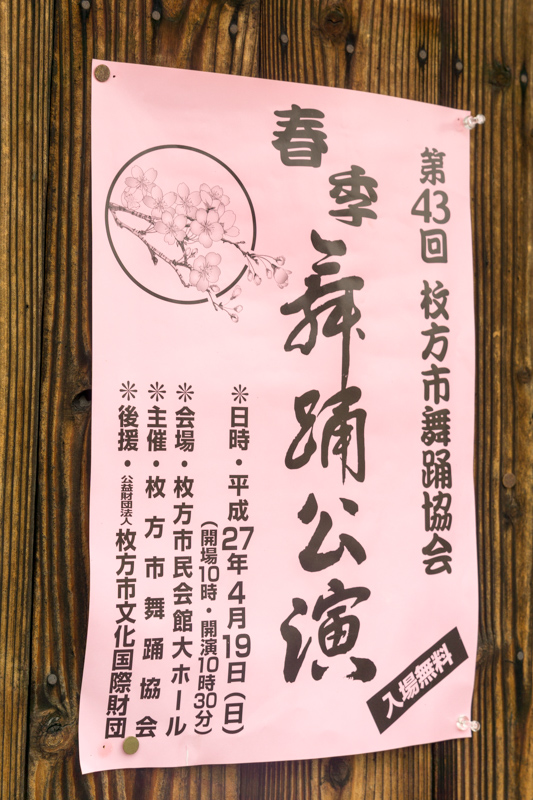 第43回 枚方市舞踊協会
春季舞踊公演
入場無料
＊日時・平成27年4月19日（日）
（開場10時・開演10時30分）
＊会場・枚方市民会館大ホール
＊主催・枚方市舞踊協会
＊後援・公益財団法人枚方市文化国際財団